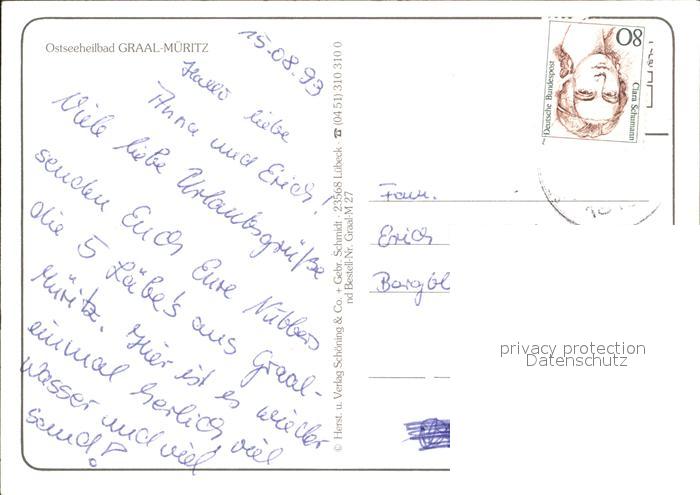 Ostseeheilbad GRAAL-MÜRITZ
15.08.93
Hallo liebe
Anna und Erich!
Viele liebe Urlaubsgrüße
senden Euch Eure Nübbers
die 5 Läbe's aus Graal-
Müritz. Hier ist es wieder
einmal herlich viel
wasser und viel
sand!
© Herst. u. Verlag Schöning & Co. + Gebr. Schmidt · 23568 Lübeck · ☎ (04 51) 310 310 0
nd Bestell-Nr. Graal-M 27
80
Deutsche Bundespost
Clara Schumann
Fam.
Erich
privacy protection
Datenschutz